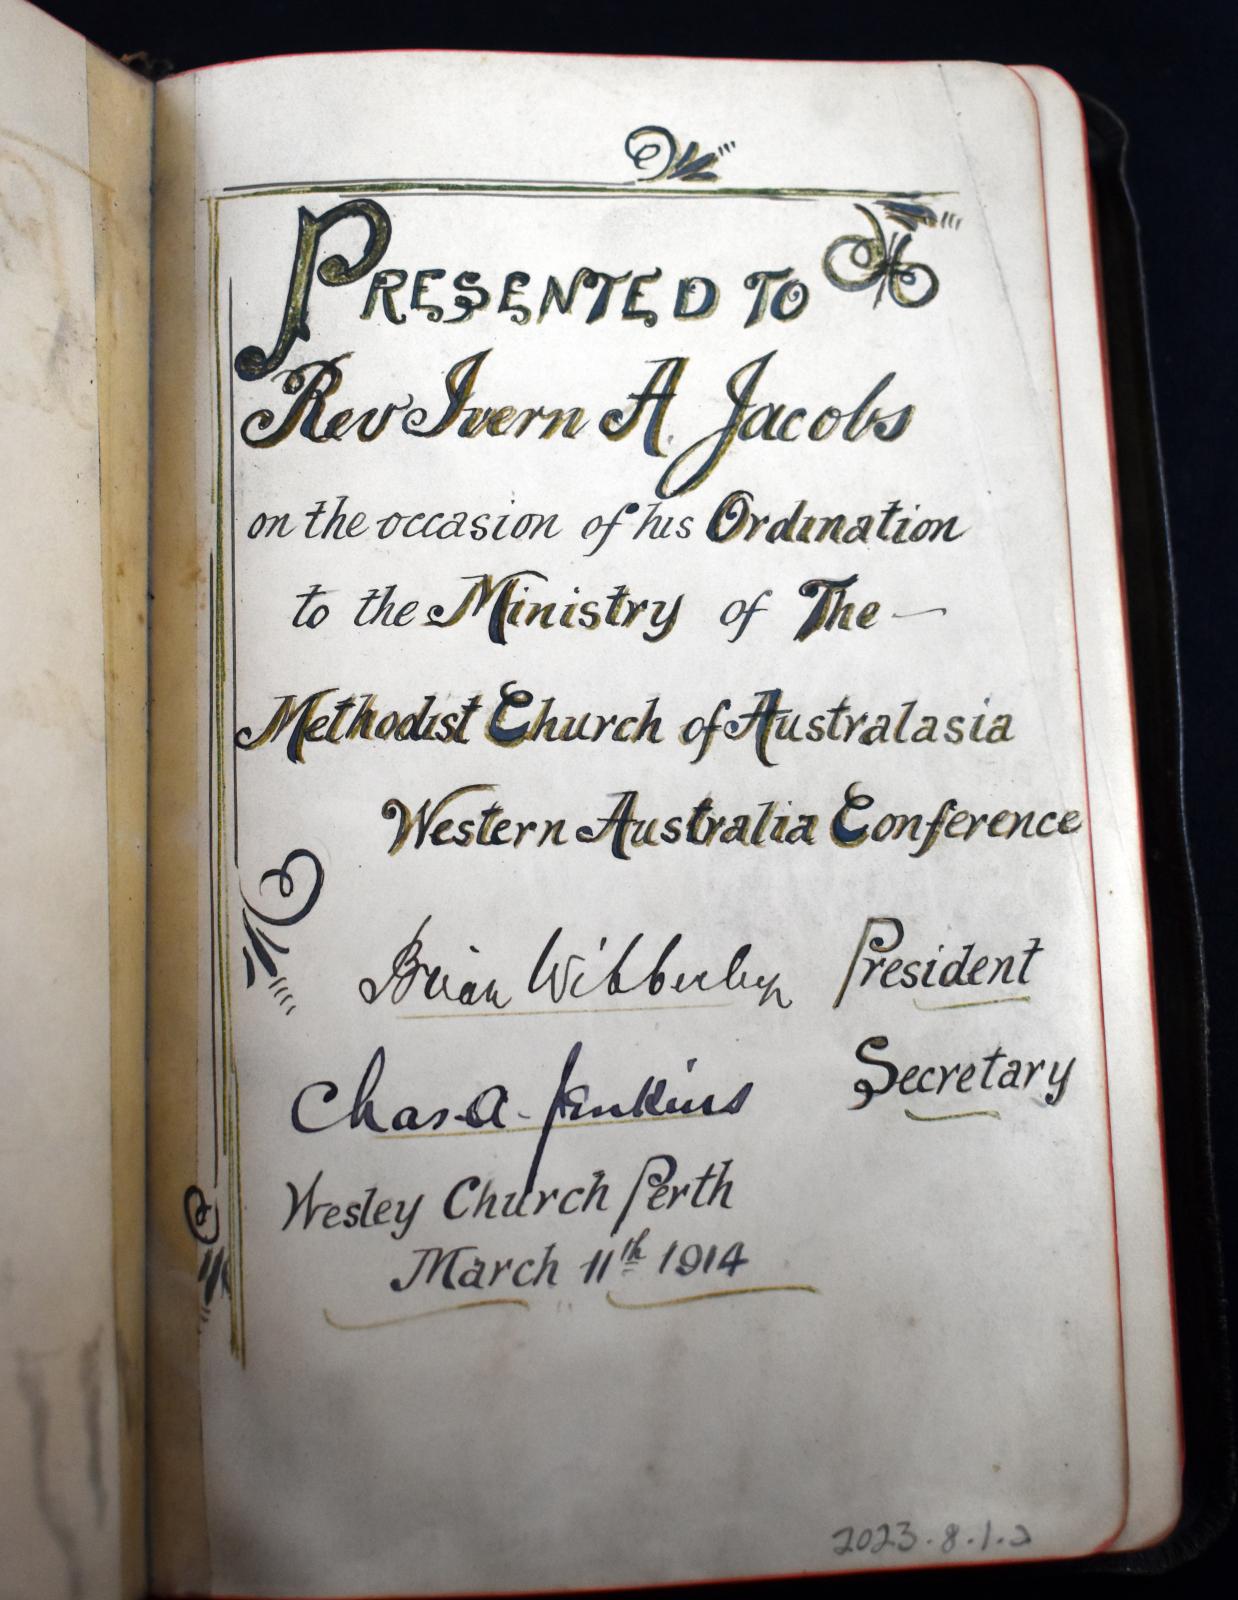 PRESENTED TO
Rev Ivern A Jacobs
on the occasion of his Ordination
to the Ministry of The —
Methodist Church of Australasia
Western Australia Conference
Brian Wibberley President
Chas. A. Jenkins Secretary
Wesley Church Perth
March 11th 1914
2023.8.1.2